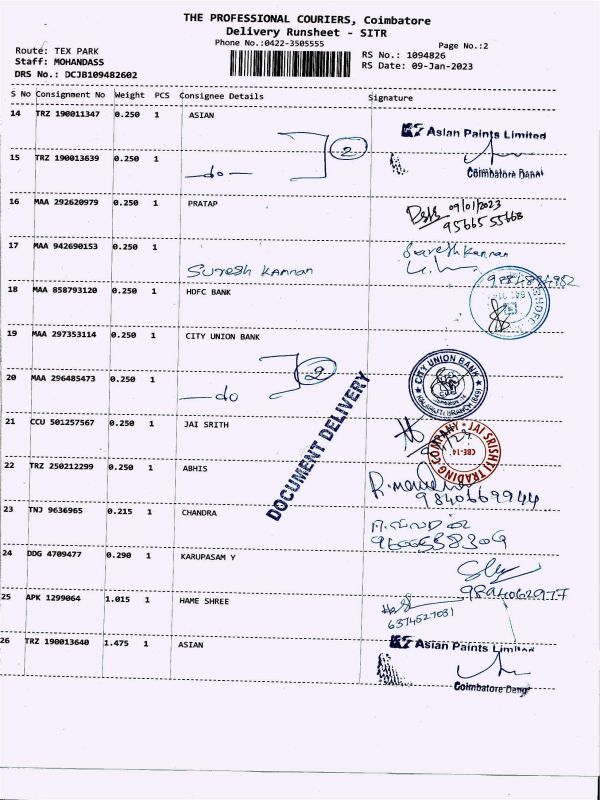 THE PROFESSIONAL COURIERS, Coimbatore
Delivery Runsheet - SITR
Phone No.:0422-3505555
Page No.:2
Route: TEX PARK
Staff: MOHANDASS
DRS No.: DCJB109482602
RS No.: 1094826
RS Date: 09-Jan-2023
S No Consignment No Weight PCS Consignee Details Signature
14 TRZ 190011347 0.250 1 ASIAN
Asian Paints Limited
2
15 TRZ 190013639 0.250 1
do
16 MAA 292620979 0.250 1 PRATAP
09/01/2023
95665 55668
17 MAA 942690153 0.250 1
Suresh Kannan
Suresh Kannan
18 MAA 858793120 0.250 1 HDFC BANK
19 MAA 297353114 0.250 1 CITY UNION BANK
2
CITY UNION BANK
20 MAA 296485473 0.250 1
do
DOCUMENT DELIVERY
21 CCU 501257567 0.250 1 JAI SRITH
JAI SRISHTI TRADING COMPANY
CBE-14
22 TRZ 250212299 0.250 1 ABHIS
9840669944
23 TNJ 9636965 0.215 1 CHANDRA
24 DDG 4709477 0.290 1 KARUPASAM Y
9894062977
25 APK 1299064 1.015 1 HAME SHREE
6374527031
26 TRZ 190013640 1.475 1 ASIAN
Asian Paints Limited